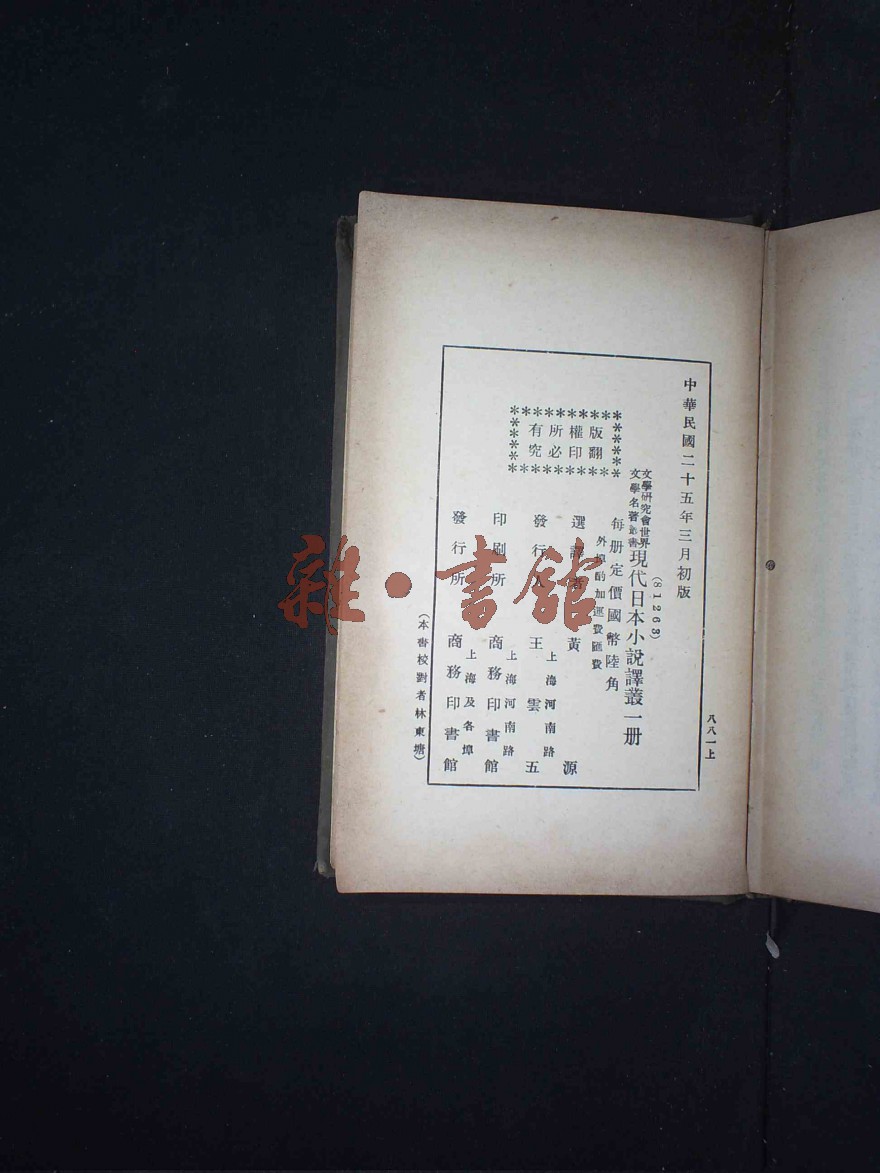 中華民國二十五年三月初版
(81263)
文學研究會世界
文學名著叢書
現代日本小說譯叢一册
每册定價國幣陸角
外埠酌加運費匯費
版權所有
翻印必究
選譯者 黃源
上海河南路
發行人 王雲五
上海河南路
印刷所 商務印書館
上海及各埠
發行所 商務印書館
(本書校對者林東塘)
八八一上
雜·書館